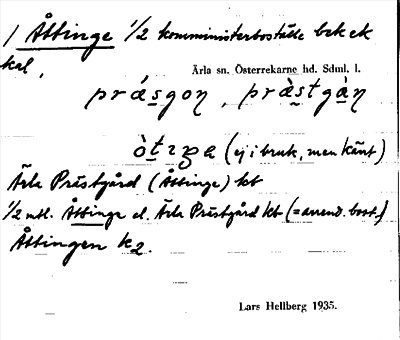 / Åttinge 1/2 komministerboställe bek ek
kal,
Ärla sn. Österrekarne hd. Sdml. l.
prásgon, pràstgàn
òtiŋe (ej i bruk, men känt)
Ärla Prästgård (Åttinge) kt
1/2 mtl. Åttinge el. Ärla Prästgård kt (=arrend. bost.)
Åttingen k2.
Lars Hellberg 1935.